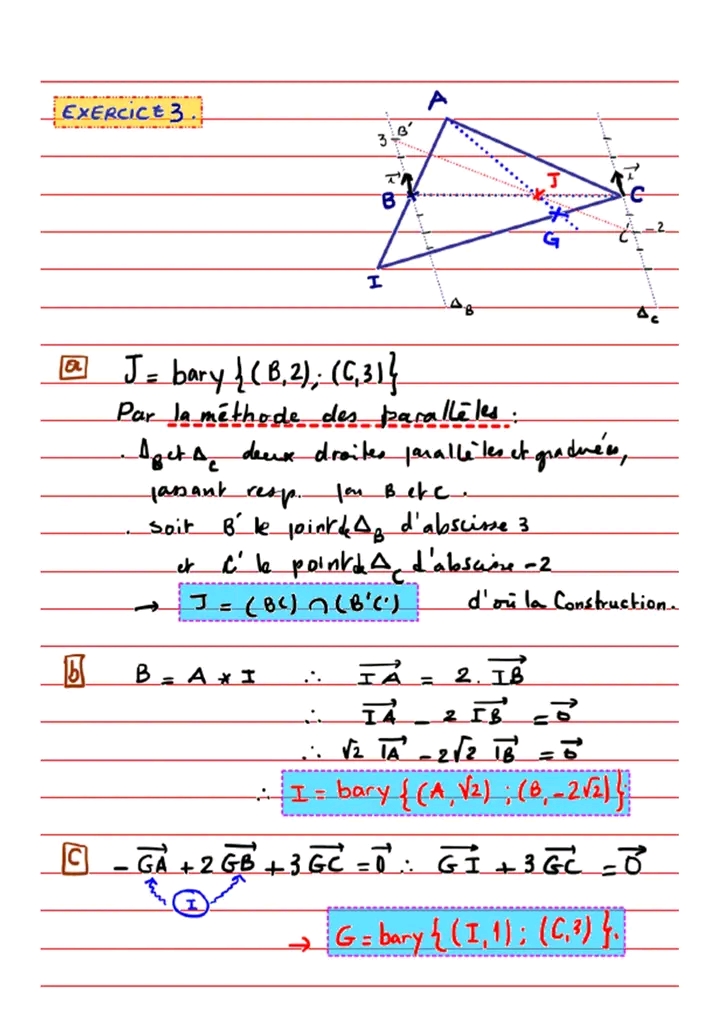 EXERCICE 3.
A
3 B'
J
i
i
B
C
G
C' -2
I
Δ_B
Δ_C
a J = bary {(B,2); (C,3)}
Par la méthode des parallèles :
. Δ_B et Δ_C deux droites parallèles et graduées,
passant resp. par B et C.
. soit B' le point de Δ_B d'abscisse 3
et C' le point de Δ_C d'abscisse -2
→ J = (BC) ∩ (B'C') d'où la Construction.
b B = A * I ∴ IA = 2. IB
∴ IA - 2 IB = 0
∴ √2 IA - 2√2 IB = 0
∴ I = bary {(A, √2) ; (B, -2√2)}
C - GA + 2 GB + 3 GC = 0 ∴ GI + 3 GC = 0
I
→ G = bary {(I,1) ; (C,3)}.